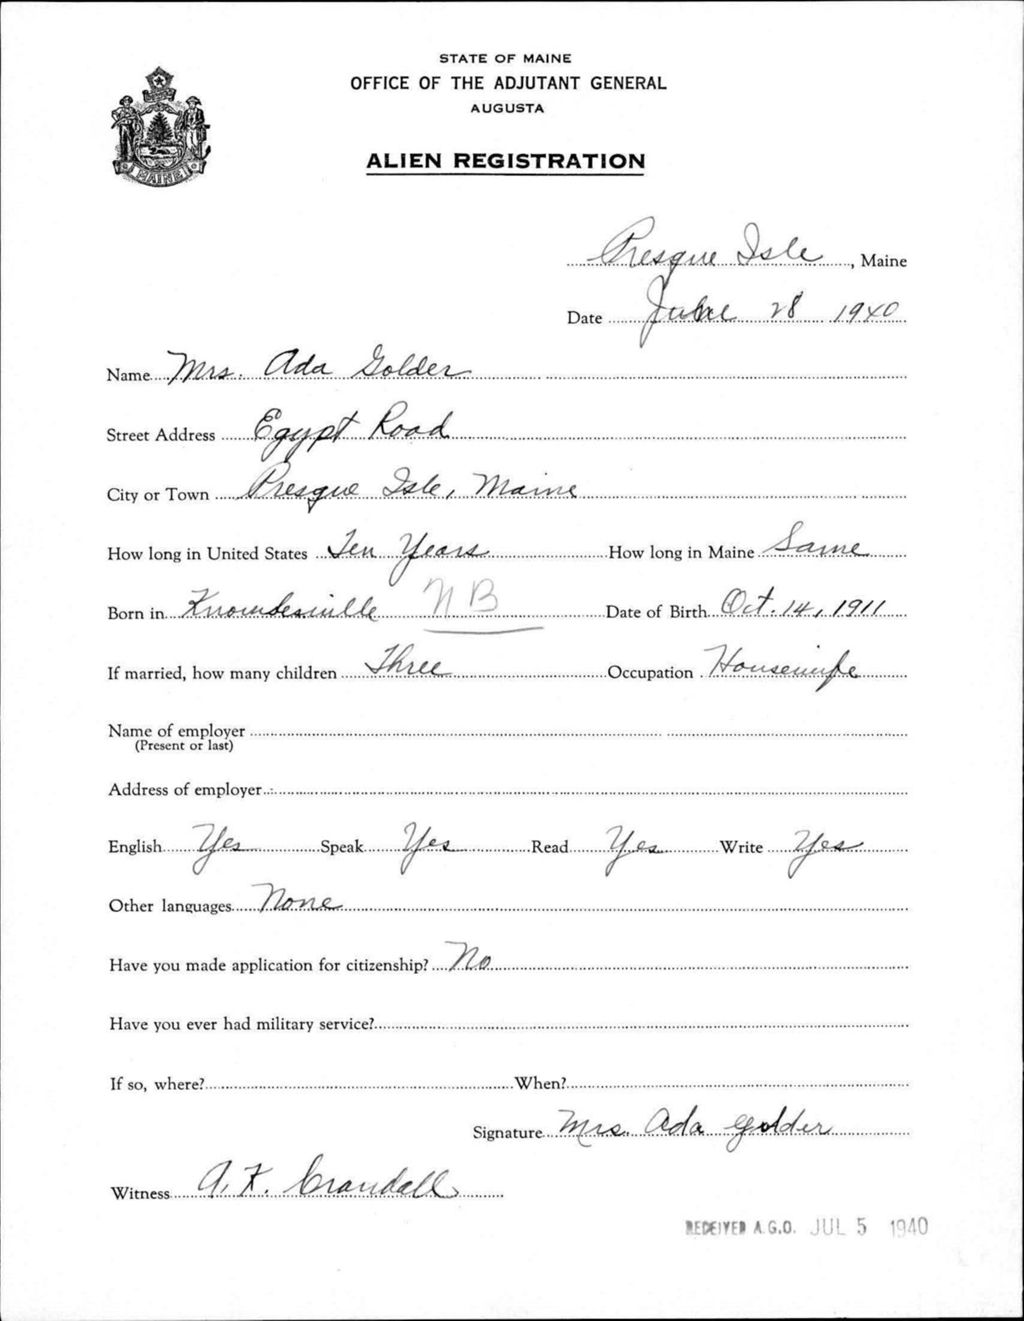 STATE OF MAINE
OFFICE OF THE ADJUTANT GENERAL
AUGUSTA
MAINE
ALIEN REGISTRATION
Presque Isle, Maine
Date June 28 1940
Name Mrs. Ada Golder
Street Address Egypt Road
City or Town Presque Isle, Maine
How long in United States Ten Years How long in Maine Same
Born in Knowlesville NB Date of Birth Oct. 14, 1911
If married, how many children Three Occupation Housewife
Name of employer
(Present or last)
Address of employer
English Yes Speak Yes Read Yes Write Yes
Other languages None
Have you made application for citizenship? No
Have you ever had military service?
If so, where? When?
Signature Mrs. Ada Golder
Witness A. F. Crandall
RECEIVED A.G.O. JUL 5 1940